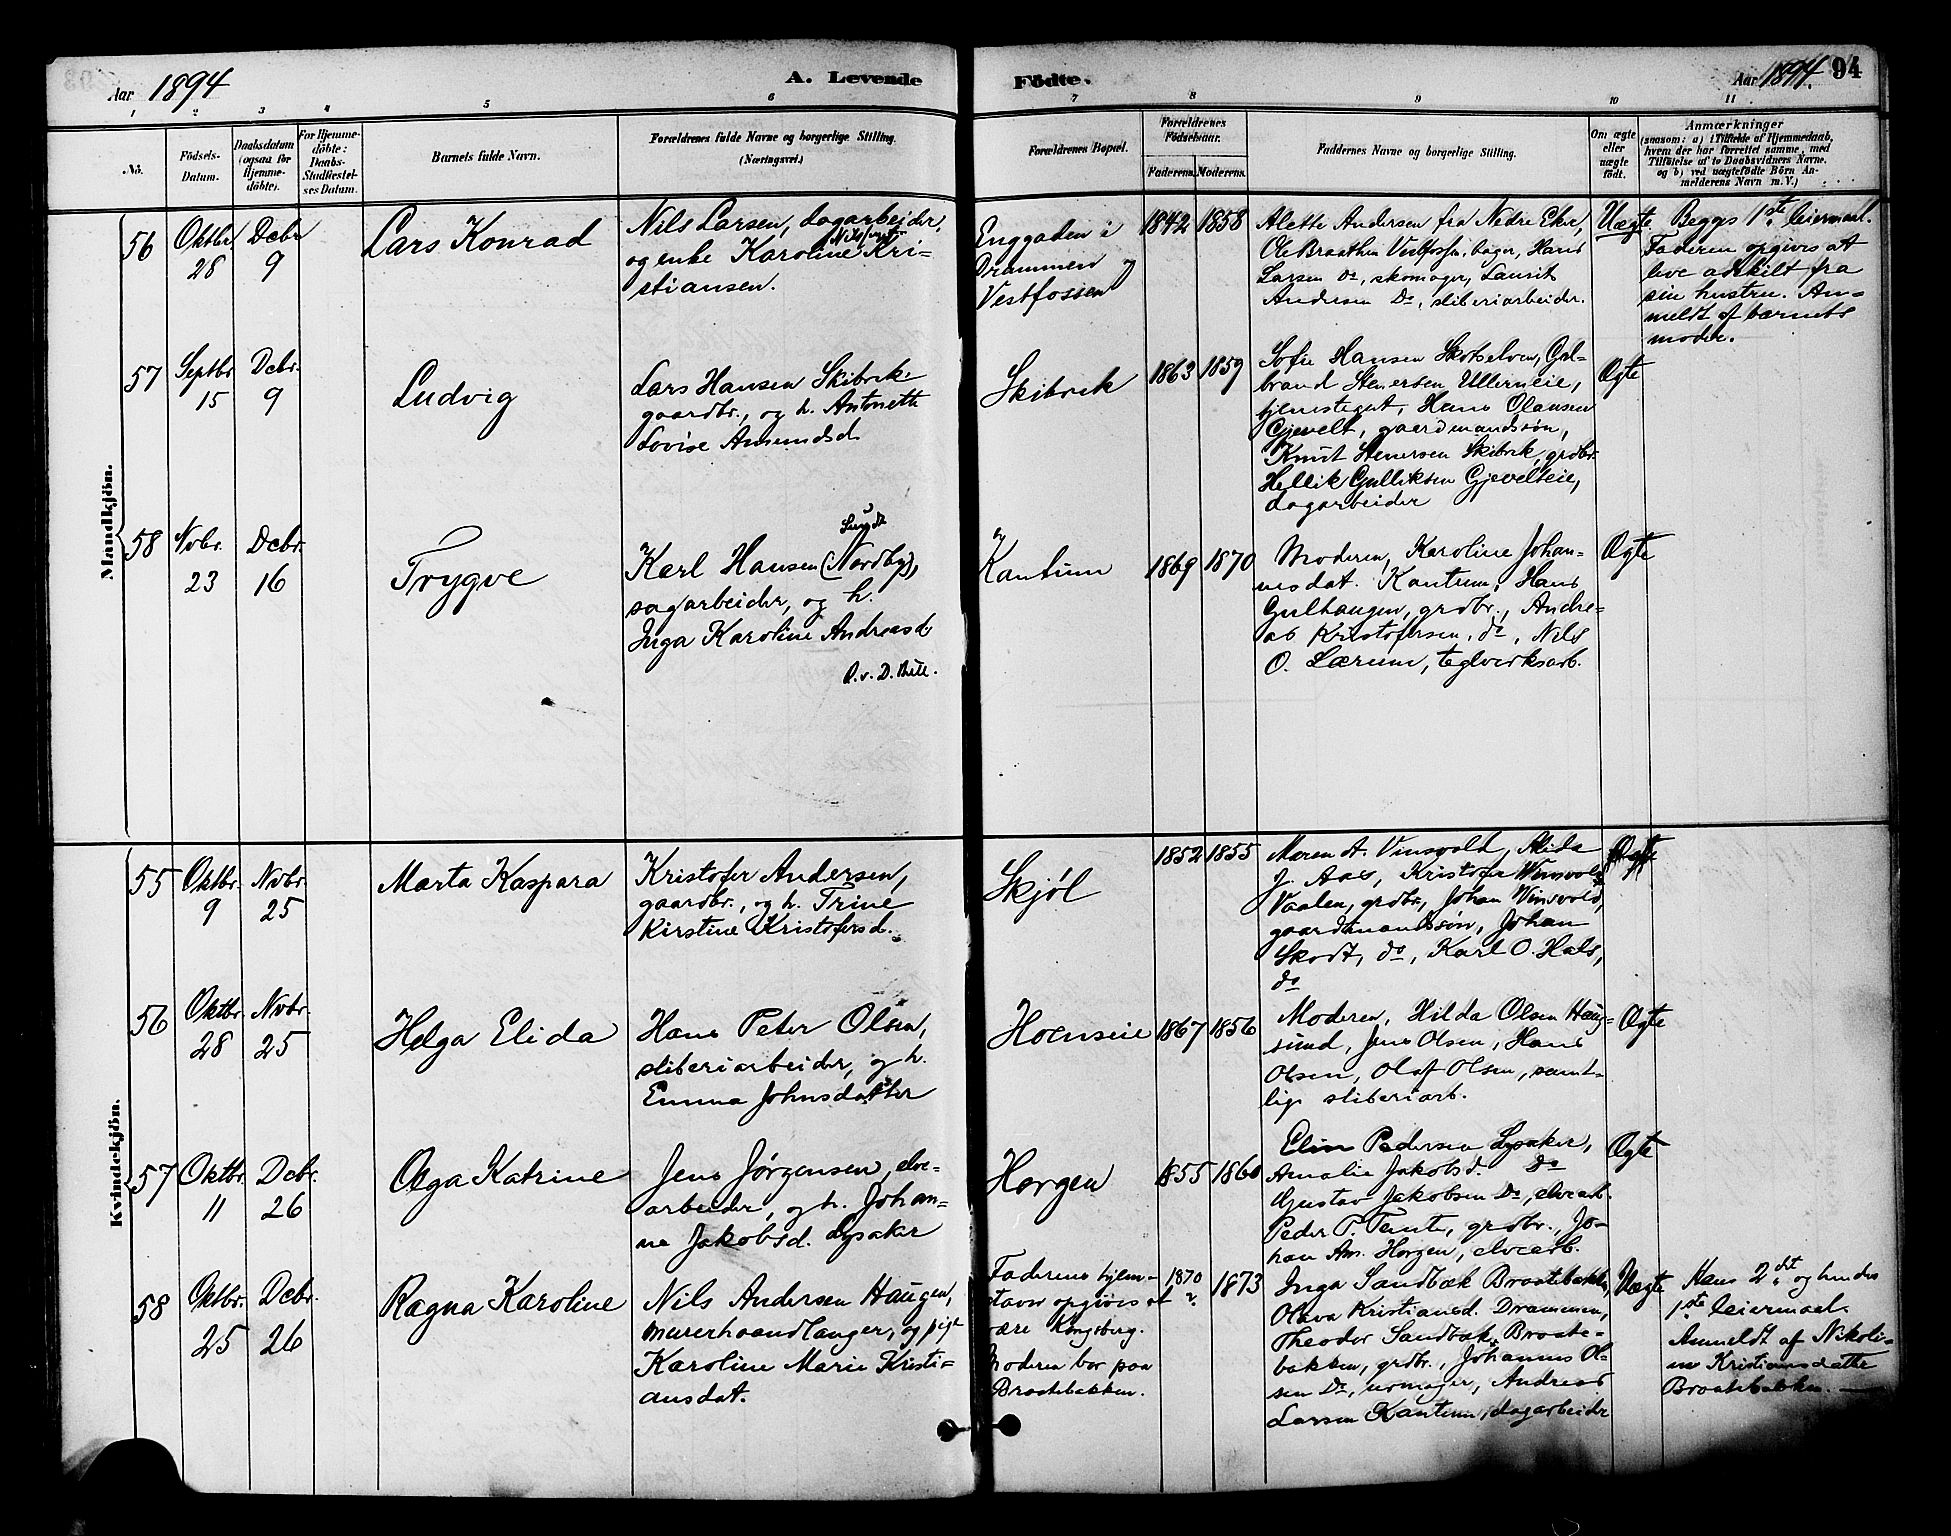 Aar 1894 A. Levende Födte. Aar 1894. 94
1 2 3 4 5 6 7 8 9 10 11
No.
Födsels-
Datum.
Daabsdatum
(ogsaa for
Hjemme-
döbte).
For Hjemme-
döbte:
Daabs-
Stadfæstel-
ses Datum.
Barnets fulde Navn.
Forældrenes fulde Navne og borgerlige Stilling.
(Næringsvei.)
Forældrenes Bopæl.
Forældrenes
Födselsaar.
Faderens. Moderens.
Faddernes Navne og borgerlige Stilling.
Om ægte
eller
uægte
födt.
Anmærkninger
(saasom: a) i Tilfælde af Hjemmedaab,
hvem der har forrettet samme, med
Tilföielse af to Daabsvidners Navne.
og b) ved uægtefödte Börn An-
melderens Navn m. V.)
Mandkjön.
56
Oktbr
28
Debr
9
Lars Konrad
Nils Larsen, dagarbeider,
og enke Karoline Kri-
stiansen.
Enggaden i
Drammen og
Vestfossen
1842 1858
Alette Andersen fra Nedre Eker,
Ole Braathen Vestfossen, Hans
Larsen Do, skomager, Laurit
Andersen Do, sliberiarbeider.
Uægte
Begges 1ste leiermaal.
Faderen opgives at
leve adskilt fra
sin hustru. An-
meldt af barnets
moder.
57
Septbr
15
Debr.
9
Ludvig
Lars Hansen Skibrek
gaardbr., og h. Antonette
Lovise Amundsd.
Skibrek
1863 1859
Sofie Hansen Skotselven, Gul-
brand Stenersen Ullerneie,
tjenestegut, Hans Olausen
Gjevelt, gaardmandssøn,
Knut Stenersen Skibrek, grdbr.
Hellik Gulliksen Gjevelteie,
dagarbeider
Ægte
58
Novbr.
23
Debr.
16
Trygve
Karl Hansen (Nordby),
sagarbeider, og h.
Inga Karoline Andreasd.
Kantum
1869 1870
Moderen, Karoline Johan-
nesdat. Kantum, Hans
Gulhaugen, grdbr., Andre-
as Kristofersen, do, Nils
O. Lærum, teglverksarb.
Ægte
Kvindekjön.
55
Oktbr.
9
Novbr.
25
Marta Kaspara
Kristofer Andersen,
gaardbr., og h. Trine
Kirstine Kristofersd.
Skjøl
1852 1855
Maren A. Vinsvold, Alida
J. Aas, Kristofer Vinsvold
Vaalen, grdbr., Johan Vinsvold,
gaardmandssøn, Johan
Skodt, do, Karl O. Hals,
do
Ægte
56
Oktbr.
28
Novbr.
25
Helga Elida
Hans Peter Olsen,
sliberiarbeider, og h.
Emma Johnsdatter
Hoenseie
1867 1856
Moderen, Hilda Olsen Haug-
sund, Jens Olsen, Hans
Olsen, Olaf Olsen, samt-
lige sliberiarb.
Ægte
57
Oktbr.
11
Debr.
26
Olga Katrine
Jens Jørgensen, elve-
arbeider, og h. Johan-
ne Jakobsd. Lysaker
Horgen
1855 1860
Elin Pedersen Lysaker,
Amalie Jakobsd. Do
Gustav Jakobsen Do, elvearb.
Peder P. Temte, grdbr., Jo-
han Am. Horgen, elvearb.
Ægte
58
Oktbr.
25
Debr.
26
Ragna Karoline
Nils Andersen Haugen,
murerhaandlanger, og pige
Karoline Marie Kristi-
ansdat.
Faderens hjem-
stavn opgives at
være Kongsberg.
Moderen bor paa
Braatebakken.
1870
?
1873
Inga Sandbæk Braatebakken,
Olava Kristiansd. Drammen,
Theodor Sandbæk Braate-
bakken, grdbr., Johannes Ol-
sen Do, urmager, Andreas
Larsen Kantum, dagarbeider
Uægte
Hans 2det og hendes
1ste leiermaal.
Anmeldt af Nikoli-
ne Kristiansdatter
Braatebakken.